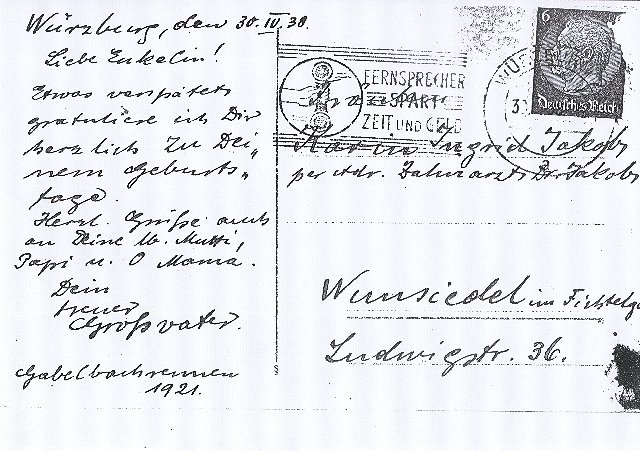 Würzburg, den 30. IV. 38.
Liebe Enkelin!
Etwas verspätet
gratuliere ich Dir
herzlich zu Dei„
nem Geburts„
tage.
Herzl. Grüße auch
an Deine lb. Mutti,
Papi u. O Mama.
Dein
treuer
Großvater.
Gabelbachrennen
1921.
FERNSPRECHER
SPART
ZEIT UND GELD
6
Deutsches Reich
Karin Ingrid Jakobs
per Adr. Zahnarzt Dr Jakobs
Wunsiedel im Fichtelge
Ludwigstr. 36.